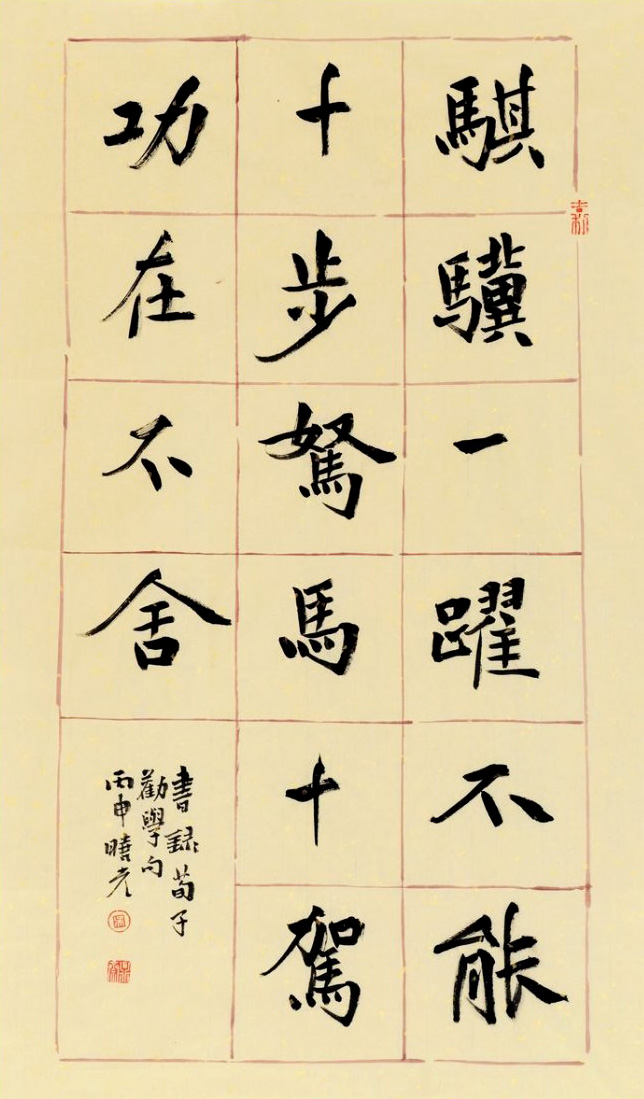 騏驥一躍不能
十步駑馬十駕
功在不舍
書録荀子
勸學句
丙申曉光
吉利